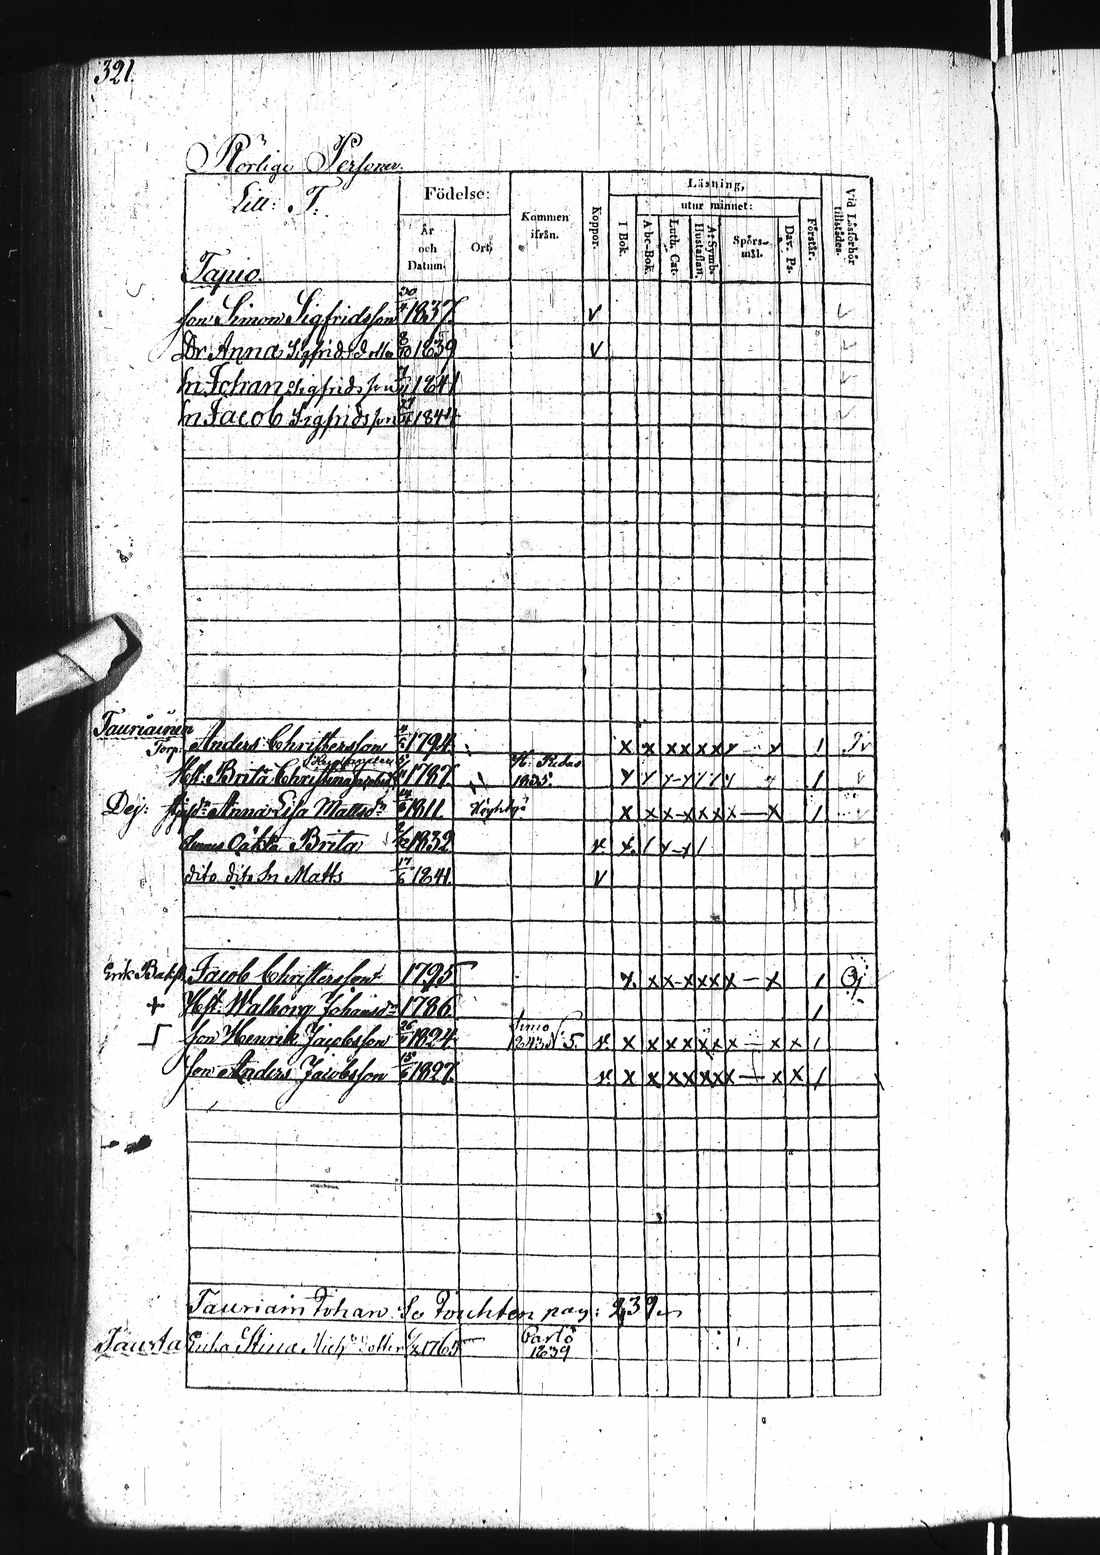 321.
Rörlige Personer.
Litt: T:
Födelse:
År och Datum.
Ort.
Kommen ifrån.
Koppor.
Läsning,
utur minnet:
I Bok.
Abc-Bok.
Luth. Cat.
A: Symb. Hustaflan.
Spörs-mål.
Dav. Ps.
Förstår.
Vid Läsförhör tillstädes.
Tapio.
son Simon Sigfridsson 1837. v
Dr Anna Sigfridsdotter 1839 v
Sn Johan Sigfridsson 1841
Sn Jacob Sigfridsson 1844
Tauriainen
Torp. Anders Christersson 1794. x x x x x x x — x 1
Hst. Brita Christina 1787. 1835. 1
Dej: Anna Lisa Mattsdr 1811. x x x - x x x — x 1
Oäkta Brita 1832
dito dito Sn Matts 17/6 1841. v
Jacob Christersson 1795 x x - x x x x — x 1
+ Hst. Walborg Johansdr 1786 1
son Henrik Jacobsson 26 1824. Simo 1843 N. 5. x x x x x x x x x 1
son Anders Jacobsson 15/6 1827. x x x x x x x — x x 1
Tauriain Johan. Se pag: 239
Michsdotter 1765 Carlö 1839